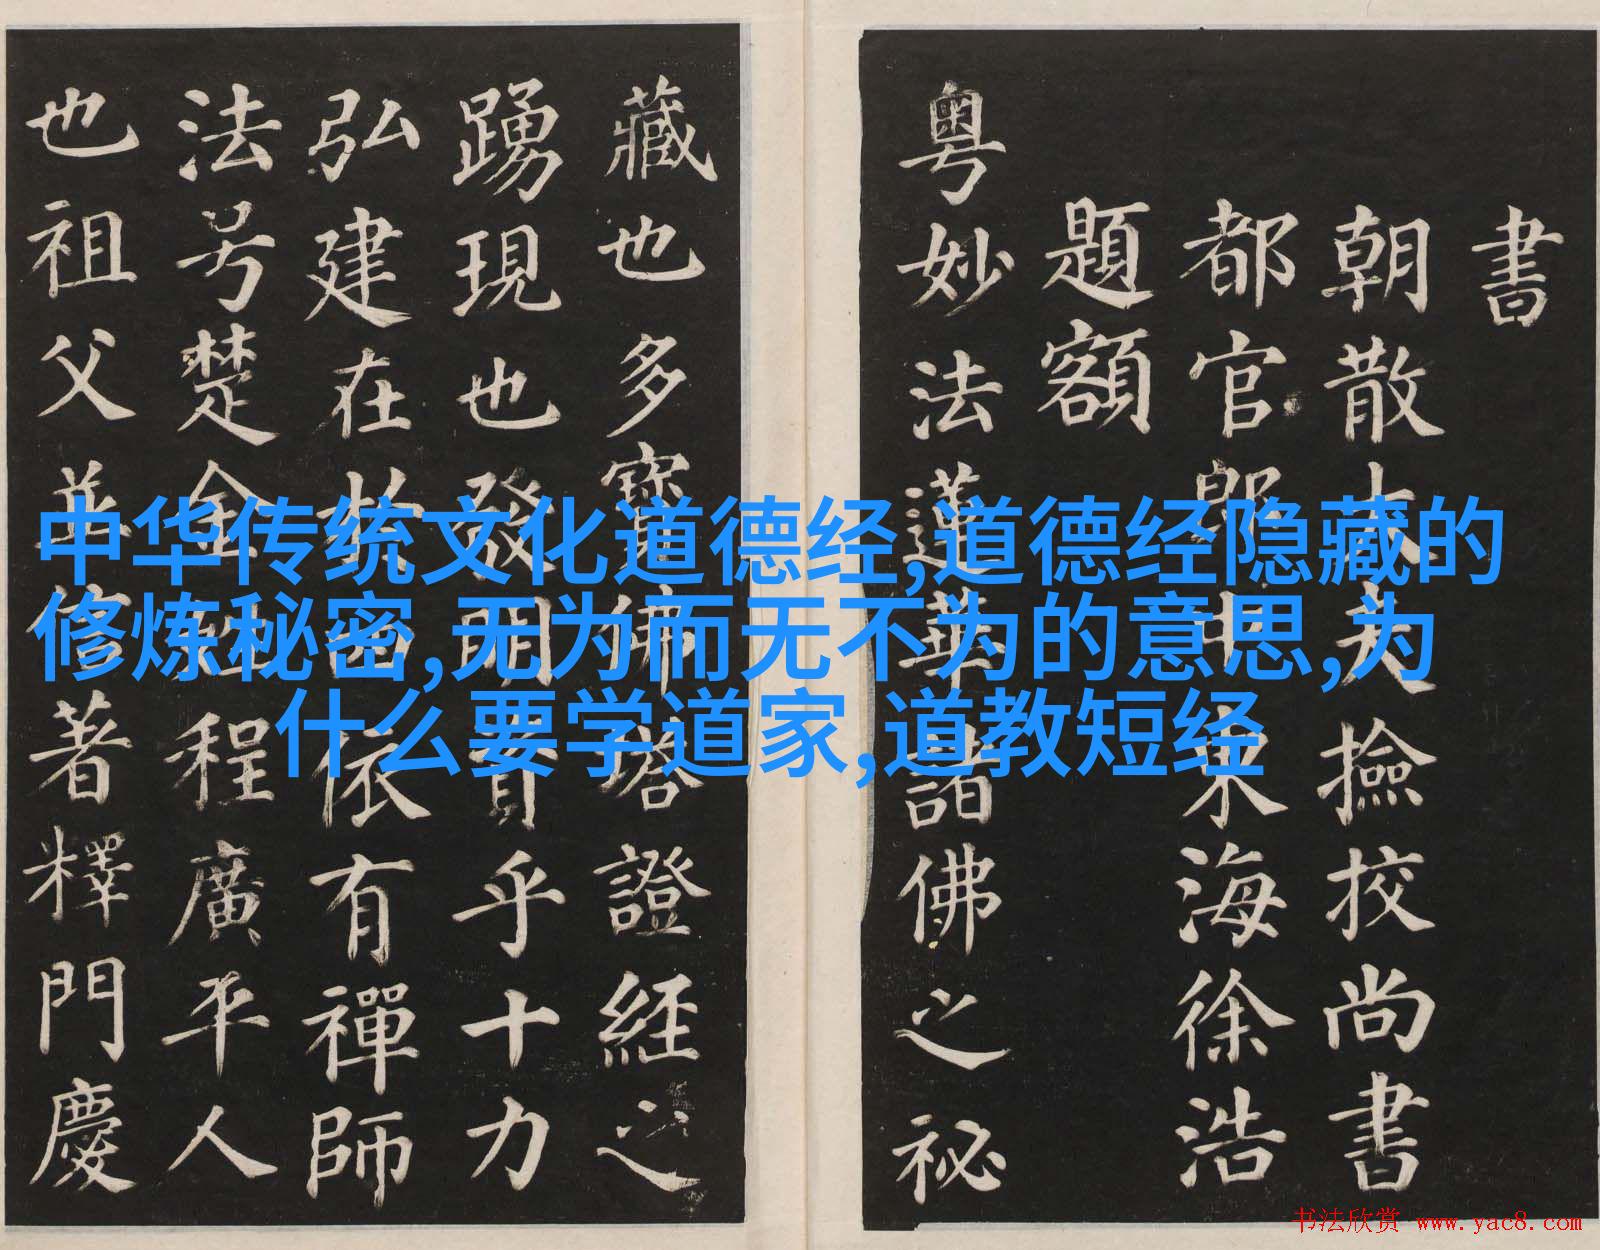 中华传统文化道德经,道德经隐藏的
修炼秘密,无为而无不为的意思,为
什么要学道家,道教短经
書
朝散大夫撿挍尚書
都官郎中東海徐浩
題額
粤妙法蓮華諸佛之祕
藏也多寶佛塔證經之
踴現也發明資乎十力
弘建在於四依有禪師
法号楚金姓程廣平人
也祖父並信著釋門慶
书法欣赏 www.yac8.com